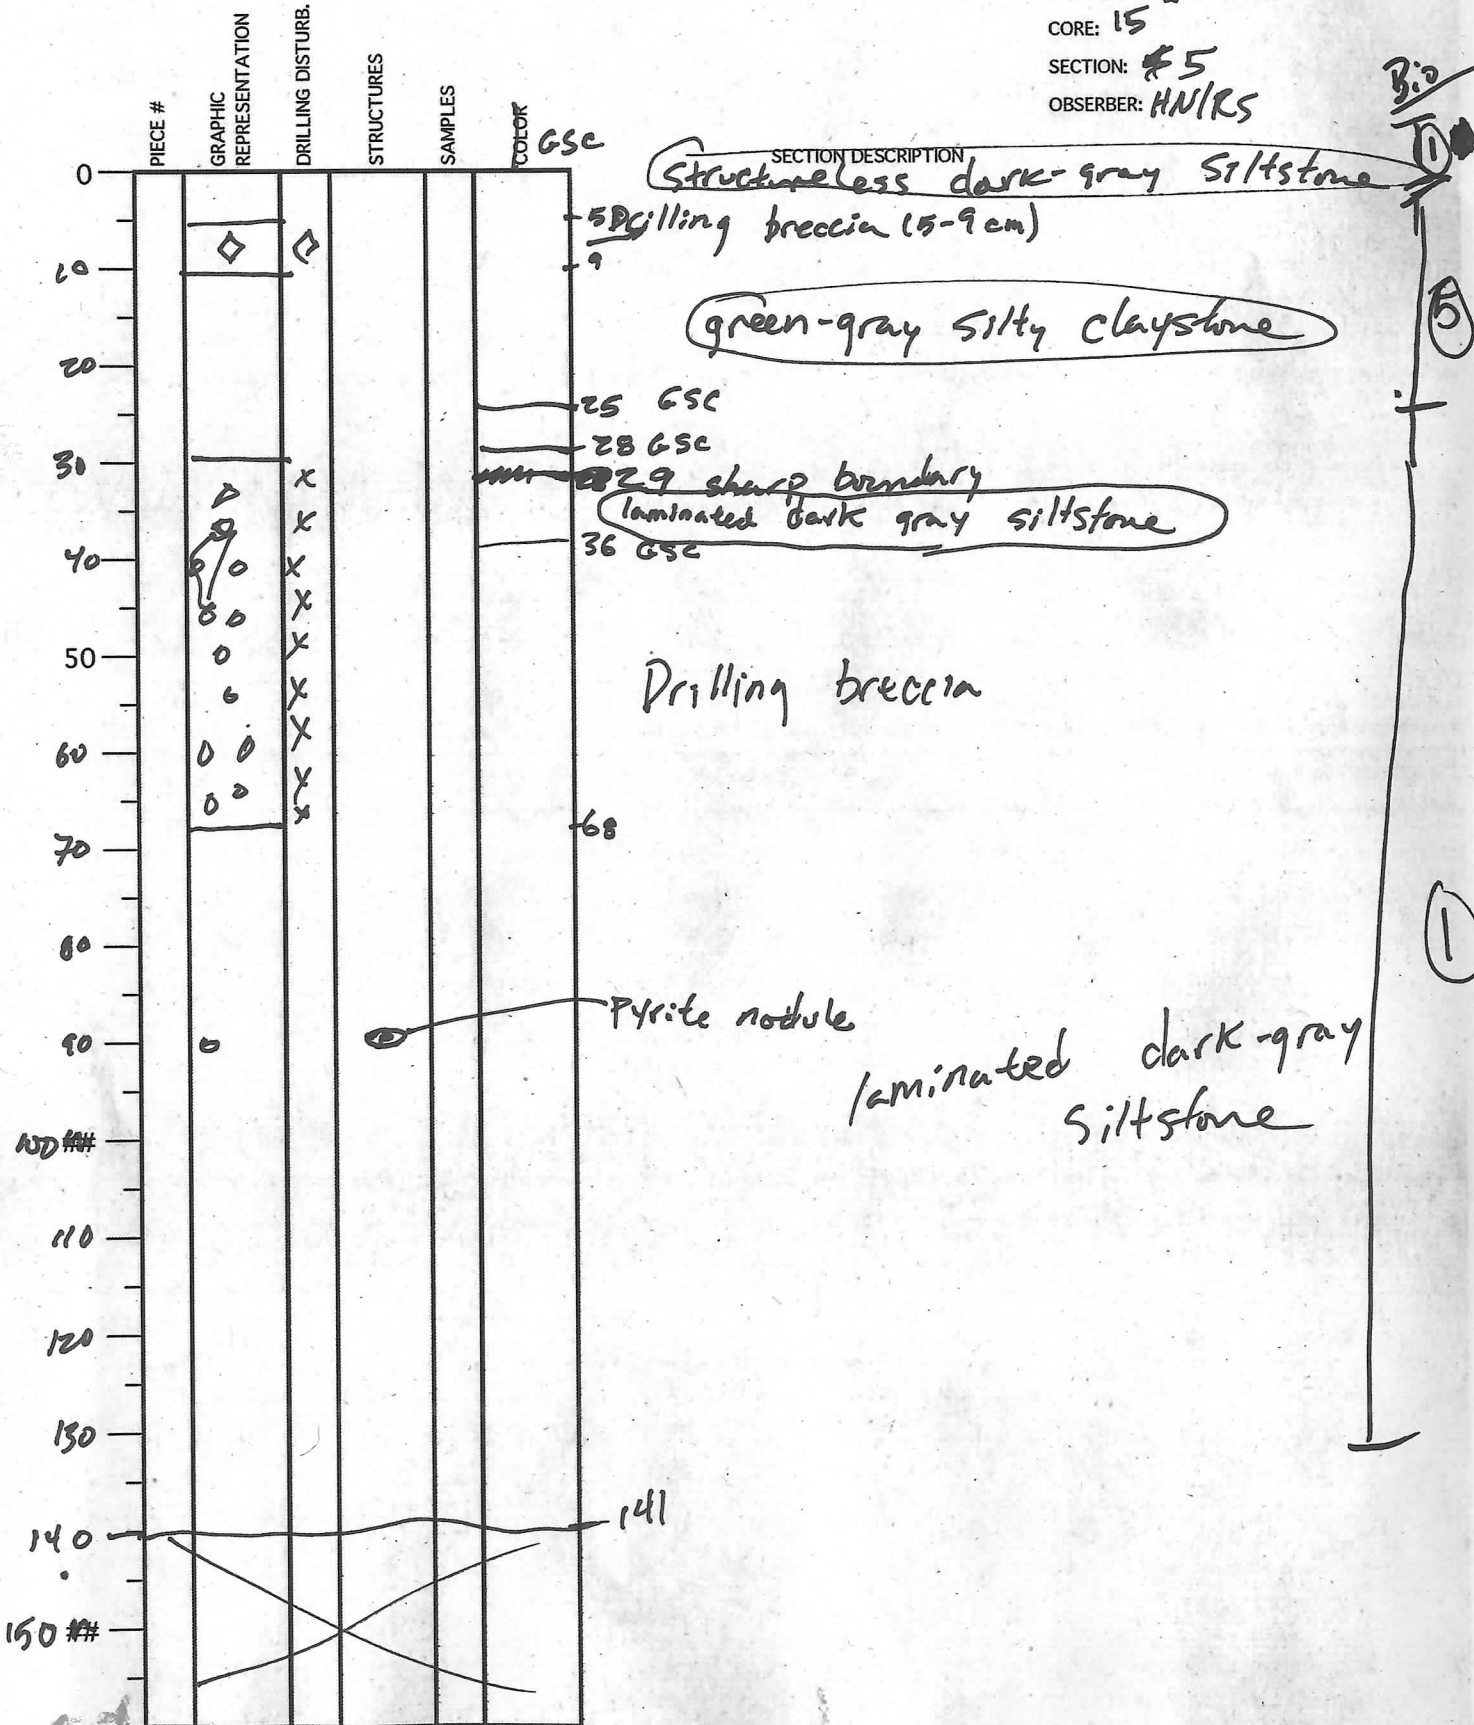 CORE: 15
SECTION: 5
OBSERBER: HN/RS
Bio
PIECE #
GRAPHIC REPRESENTATION
DRILLING DISTURB.
STRUCTURES
SAMPLES
COLOR
GSC
SECTION DESCRIPTION
Structureless dark-gray siltstone
1
0
5 Drilling breccia (5-9 cm)
9
10
5
green-gray silty claystone
20
25 GSC
28 GSC
30
29 sharp boundary
laminated dark gray siltstone
36 GSC
40
50
Drilling breccia
60
68
70
80
1
Pyrite nodule
90
laminated dark-gray
siltstone
100 ##
110
120
130
141
140
150 ##